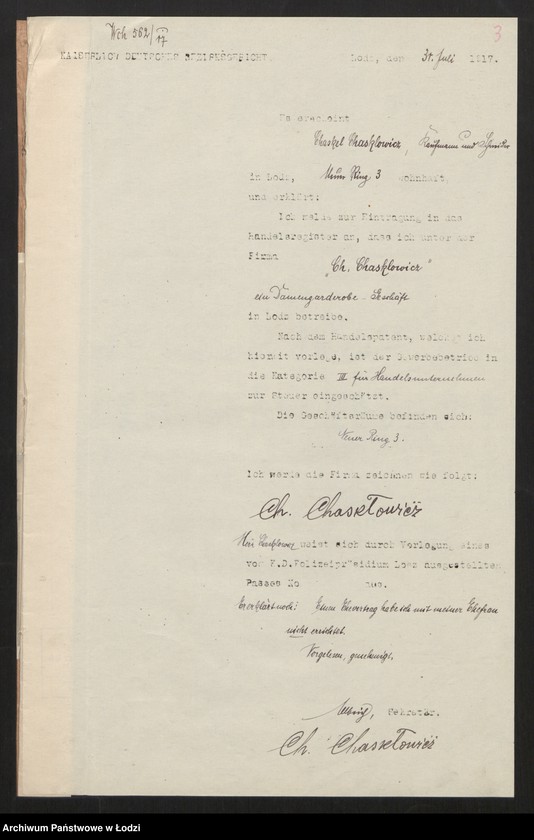 Wch 562/VI 17
3
KAISERLICH DEUTSCHES BEZIRKSGERICHT.
Lodz, den 31. Juli 1917.
Es erscheint
Chaskel Chasklowicz, Kaufmann und Schneider
in Lodz, Neuer Ring 3 wohnhaft,
und erklärt:
Ich melde zur Eintragung in das
Handelsregister an, dass ich unter der
Firma
"Ch. Chasklowicz"
ein Damengarderobe-Geschäft
in Lodz betreibe.
Nach dem Handelspatent, welches ich
hiermit vorlege, ist der Gewerbebetrieb in
die Kategorie III für Handelsunternehmen
zur Steuer eingeschätzt.
Die Geschäftsräume befinden sich:
Neuer Ring 3.
Ich werde die Firma zeichnen wie folgt:
Ch. Chaskłowicz
Chasklowicz weist sich durch Vorlegung eines
vom K.D.Polizeipräsidium Lodz ausgestellten
Passes No aus.
Er erklärt noch: Einen Ehevertrag habe ich mit meiner Ehefrau
nicht errichtet.
Vorgelesen, genehmigt.
Sekretär.
Ch. Chaskłowicz
Archiwum Państwowe w Łodzi